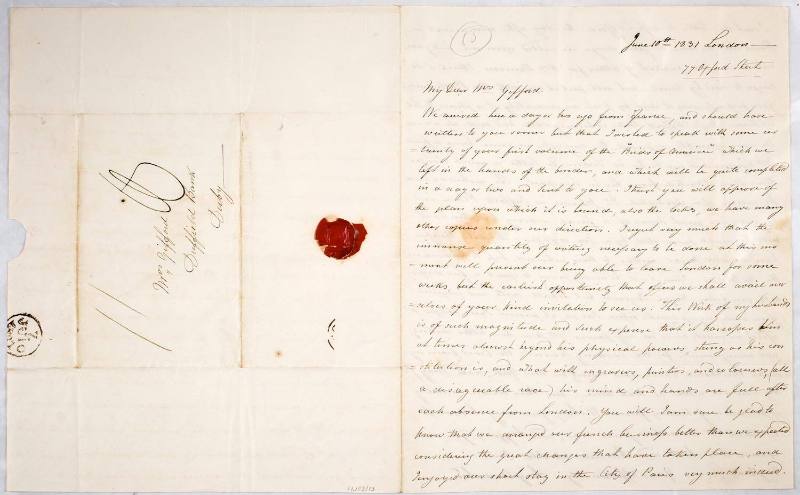 Mrs Gifford
Duffield Bank
Derby
June 10th 1831 London
77 Oxford Street
My Dear Mrs Gifford.
We arrived here a day or two ago from France, and should have
written to you sooner but that I wished to speak with some cer
=tainty of your first volume of the "Birds of America" which we
left in the hands of the binder, and which will be quite completed
in a day or two and sent to you. I trust you will approve of
the plan upon which it is bound, also the , we have many
other copies under our direction. I regret very much that the
immense quantity of writing necessary to be done at this mo
=ment will prevent our being able to leave London for some
weeks, but the earliest opportunity that offers we shall avail our
=selves of your kind invitation to see us. This Work of my husbands
is of such magnitude and such expense that it harrasses him
at times almost beyond his physical powers, strong as his con
=stitution is, and what with engravers, printers, and colourers, (all
a disagreeable race) his mind and hands are full after
each absence from London. You will I am sure be glad to
know that we arranged our french business better than we expected
considering the great changes that have taken place, and
I enjoyed our short stay in the City of Paris very much indeed.